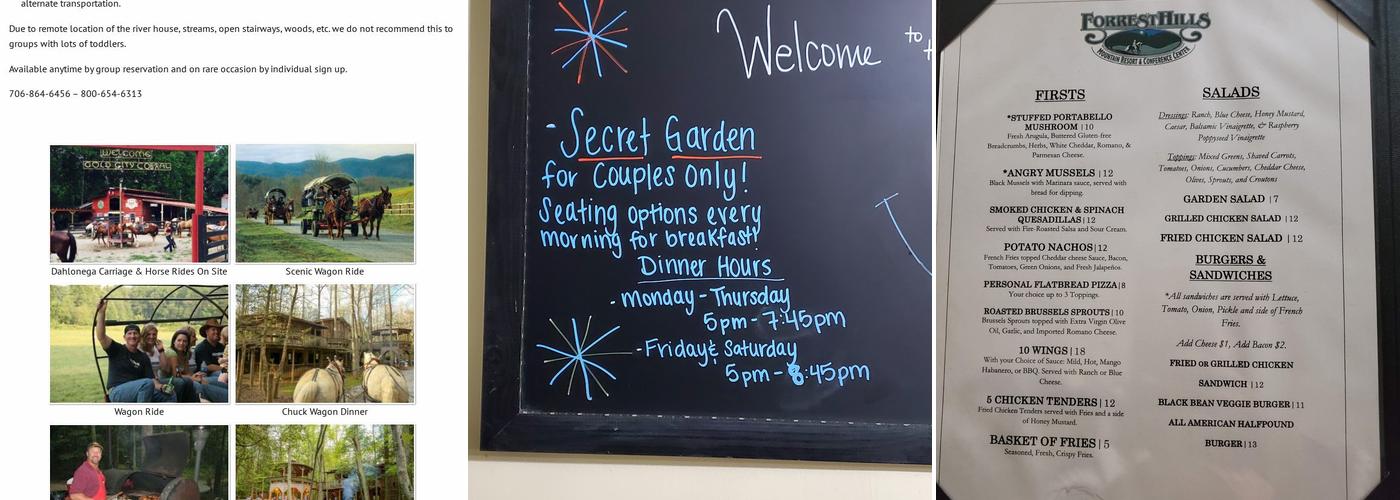 alternate transportation.
Due to remote location of the river house, streams, open stairways, woods, etc. we do not recommend this to
groups with lots of toddlers.
Available anytime by group reservation and on rare occasion by individual sign up.
706-864-6456 – 800-654-6313
WELCOME
GOLD CITY CORRAL
Dahlonega Carriage & Horse Rides On Site
Scenic Wagon Ride
Wagon Ride
Chuck Wagon Dinner
Welcome to
- Secret Garden
for Couples Only!
Seating options every
morning for breakfast!
Dinner Hours
- Monday - Thursday
5pm - 7:45pm
- Friday & Saturday
5pm - 8:45pm
FORREST HILLS
MOUNTAIN RESORT & CONFERENCE CENTER
FIRSTS
*STUFFED PORTABELLO
MUSHROOM | 10
Fresh Arugula, Buttered Gluten-free
Breadcrumbs, Herbs, White Cheddar, Romano, &
Parmesan Cheese.
*ANGRY MUSSELS | 12
Black Mussels with Marinara sauce, served with
bread for dipping.
SMOKED CHICKEN & SPINACH
QUESADILLAS | 12
Served with Fire-Roasted Salsa and Sour Cream.
POTATO NACHOS | 12
French Fries topped Cheddar cheese Sauce, Bacon,
Tomatoes, Green Onions, and Fresh Jalapeños.
PERSONAL FLATBREAD PIZZA | 8
Your choice up to 3 Toppings.
ROASTED BRUSSELS SPROUTS | 10
Brussels Sprouts topped with Extra Virgin Olive
Oil, Garlic, and Imported Romano Cheese.
10 WINGS | 18
With your Choice of Sauce: Mild, Hot, Mango
Habanero, or BBQ. Served with Ranch or Blue
Cheese.
5 CHICKEN TENDERS | 12
Fried Chicken Tenders served with Fries and a side
of Honey Mustard.
BASKET OF FRIES | 5
Seasoned, Fresh, Crispy Fries.
SALADS
Dressings: Ranch, Blue Cheese, Honey Mustard,
Caesar, Balsamic Vinaigrette, & Raspberry
Poppyseed Vinaigrette
Toppings: Mixed Greens, Shaved Carrots,
Tomatoes, Onions, Cucumbers, Cheddar Cheese,
Olives, Sprouts, and Croutons
GARDEN SALAD | 7
GRILLED CHICKEN SALAD | 12
FRIED CHICKEN SALAD | 12
BURGERS &
SANDWICHES
*All sandwiches are served with Lettuce,
Tomato, Onion, Pickle and side of French
Fries.
Add Cheese $1, Add Bacon $2.
FRIED OR GRILLED CHICKEN
SANDWICH | 12
BLACK BEAN VEGGIE BURGER | 11
ALL AMERICAN HALFPOUND
BURGER | 13